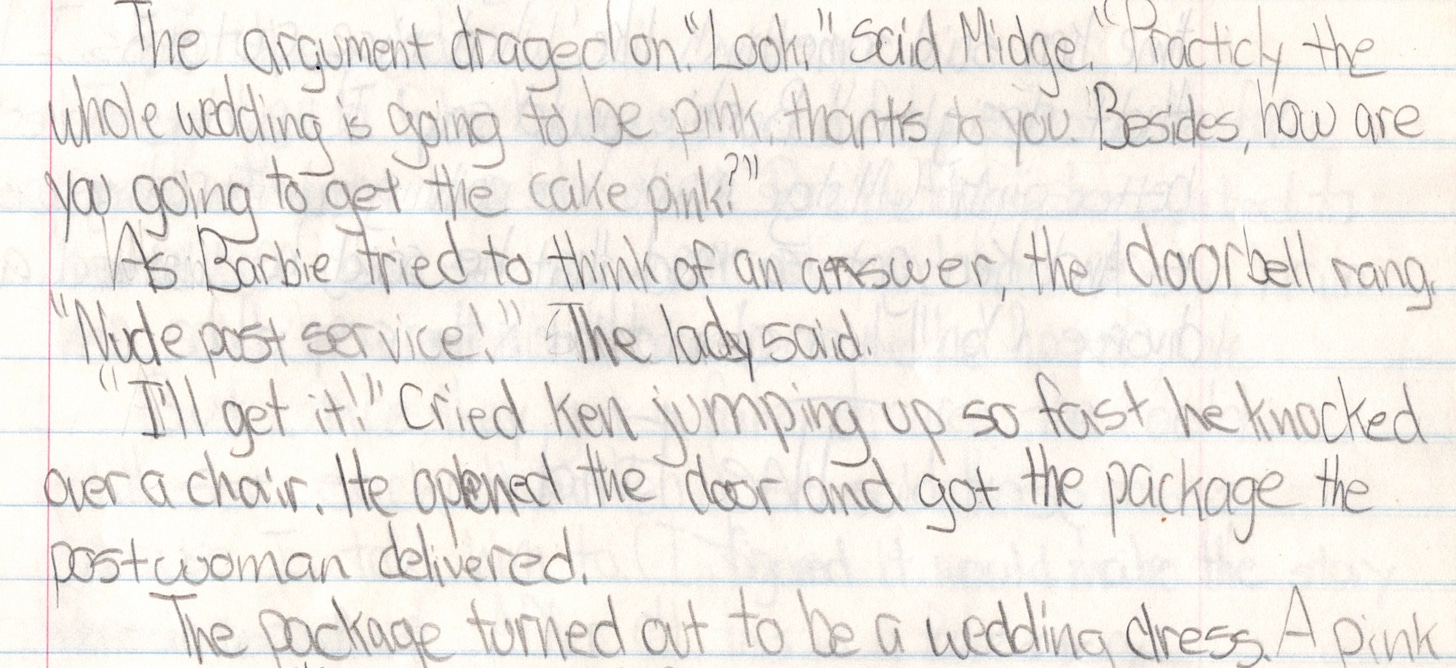 The argument draged on. "Look," said Midge. "Practicly the
whole wedding is going to be pink, thanks to you. Besides, how are
you going to get the cake pink?"
As Barbie tried to think of an answer, the doorbell rang.
"Nude post service!" The lady said.
"I'll get it!" Cried Ken jumping up so fast he knocked
over a chair. He opened the door and got the package the
postwoman delivered.
The package turned out to be a wedding dress. A pink